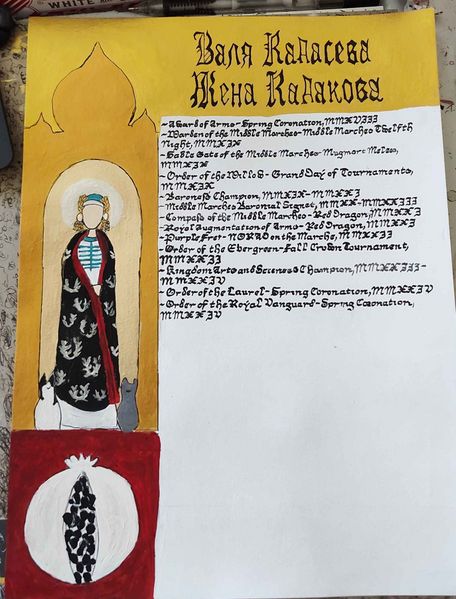 WHITE
Валя Кадасева
Жена Кадакова
~Award of Arms~Spring Coronation, MMXVIII
~Warden of the Middle Marches~Middle Marches Twelfth
Night, MMXIX
~Sable Gate of the Middle Marches~Mugmort Melee,
MMXIX
~Order of the Willow~Grand Day of Tournaments,
MMXIX
~Baroness Champion, MMXIX~MMXXI
~Middle Marches Baronial Signet, MMXX~MMXXIII
~Compass of the Middle Marches~Red Dragon, MMXXI
~Royal Augmentation of Arms~Red Dragon, MMXXI
~Purple Fret~NORAD on the Marche, MMXXII
~Order of the Evergreen~Fall Crown Tournament,
MMXXII
~Kingdom Arts and Sciences Champion, MMXXIII~
MMXXIV
~Order of the Laurel~Spring Coronation, MMXXIV
~Order of the Royal Vanguard~Spring Coronation,
MMXXIV